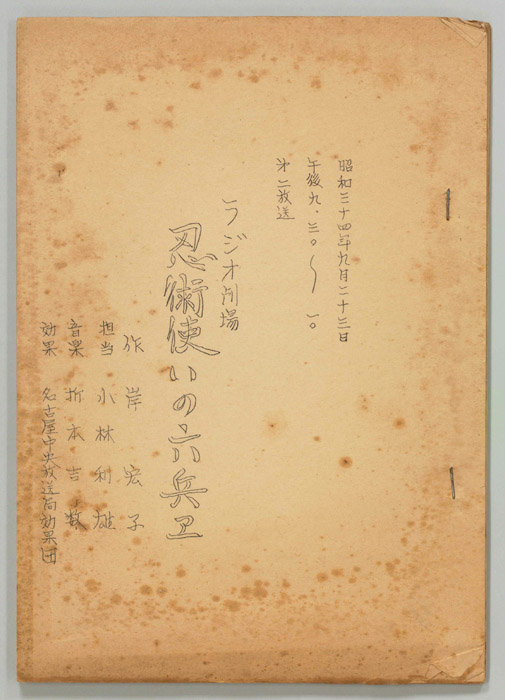 昭和三十四年九月二十三日
午後九.三〇〜一〇
㐧二放送
ラジオ劇場
忍術使いの六兵卫
作 岸宏子
担当 小林利雄
音楽 折本吉数
効果 名古屋中央放送局効果団